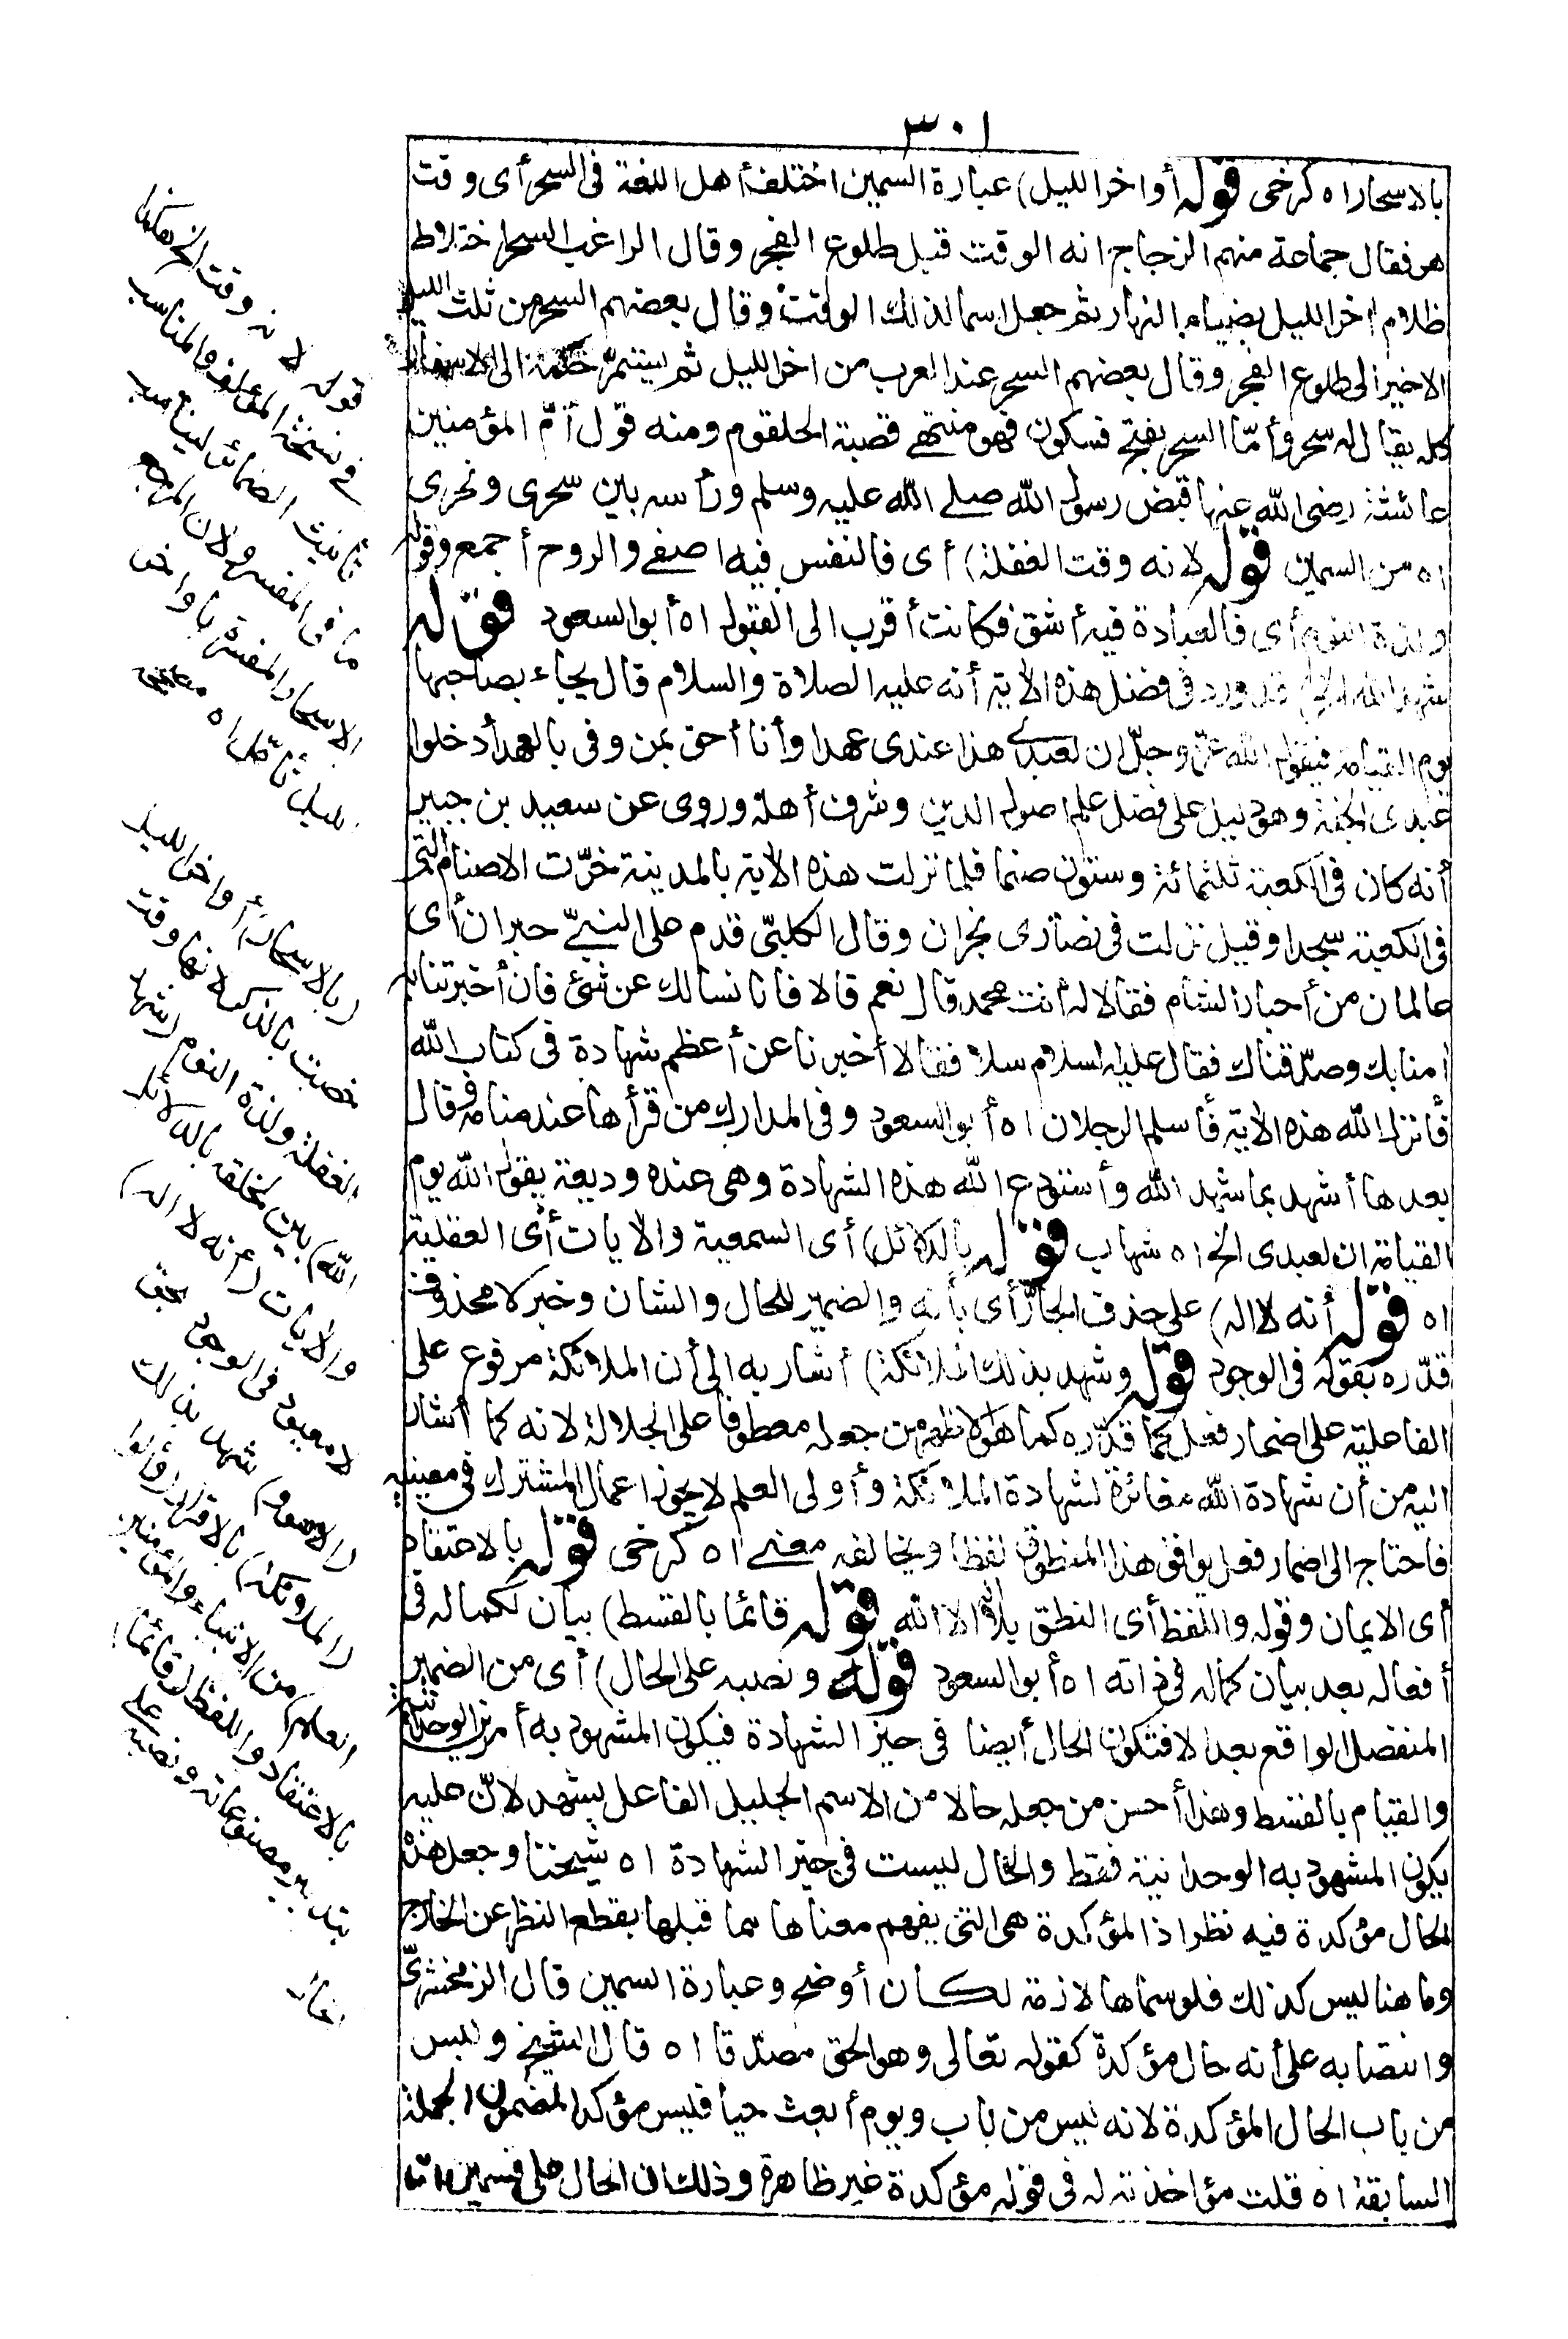 ٣٠١
بالاسحار اه كرخى قوله أواخر الليل) عبارة السمين اختلف أهل اللغة فى السحر أى وقت
هو فقال جماعة منهم الزجاج انه الوقت قبل طلوع الفجر وقال الراغب السحر اختلاط
ظلام اخر الليل بضياء النهار ثم جعل اسما لذلك الوقت وقال بعضهم السحر من ثلث الليل
الاخير الى طلوع الفجر وقال بعضهم السحر عند العرب من اخر الليل ثم يستمر حكمه الى الاسفار
كله يقال له سحر وأمّا السحر بفتح فسكون فهو منتهى قصبة الحلقوم ومنه قول أمّ المؤمنين
عائشة رضى الله عنها قبض رسول الله صلى الله عليه وسلم ورأسه بين سحرى ونحرى
اه من السمين قوله لانه وقت الغفلة) أى فالنفس فيه اصفى والروح أجمع وقوله
ولذة النوم أى فالعبادة فيه أشق فكانت أقرب الى القبول اه أبو السعود قوله
شهد الله الخ) قد ورد فى فضل هذه الآية أنه عليه الصلاة والسلام قال يجاء بصاحبها
يوم القيامة فيقول الله عزّ وجلّ ان لعبدى هذا عندى عهدا وأنا أحق بمن وفى بالعهد أدخلوا
عبدى الجنة وهو دليل على فضل علم اصول الدين وشرف أهله وروى عن سعيد بن جبير
أنه كان فى الكعبة ثلثمائة وستون صنما فلما نزلت هذه الآية بالمدينة خرّت الاصنام التى
فى الكعبة سجدا وقيل نزلت فى نصارى نجران وقال الكلبىّ قدم على النبىّ حبران أى
عالمان من أحبار الشام فقالا له أنت محمد قال نعم قالا فانا نسالك عن شئ فان أخبرتنا به
امنا بك وصدّقناك فقال عليه السلام سلا فقالا أخبرنا عن أعظم شهادة فى كتاب الله
فأنزل الله هذه الآية فأسلم الرجلان اه أبو السعود وفى المدارك من قرأها عند منامه وقال
بعدها أشهد بما شهد الله وأستودع الله هذه الشهادة وهى عنده وديعة يقول الله يوم
القيامة ان لعبدى الخ اه شهاب قوله بالدلائل) أى السمعية والآيات أى العقلية
اه قوله أنه لا اله) على حذف الجارّ أى بأنه والضمير للحال والشان وخبر لا محذوف
قدّره بقوله فى الوجود قوله وشهد بذلك الملائكة) أشار به الى أن الملائكة مرفوع على
الفاعلية على اضمار فعل كما قدّره كما هو الاظهر من جعله معطوفا على الجلالة لانه كما أشار
اليه من أن شهادة الله مغائرة لشهادة الملائكة وأولى العلم لا يجوز اعمال المشترك فى معنييه
فاحتاج الى اضمار فعل يوافق هذا المنطوق لفظا ويخالفه معنى اه كرخى قوله بالاعتقاد
أى الايمان وقوله واللفظ أى النطق بلا اله الا الله قوله قائما بالقسط) بيان لكماله فى
أفعاله بعد بيان كماله فى ذاته اه أبو السعود قوله ونصبه على الحال) أى من الضمير
المنفصل الواقع بعد الا فتكون الحال أيضا فى حيز الشهادة فيكون المشهود به أمرين الوحدانية
والقيام بالقسط وهذا أحسن من جعله حالا من الاسم الجليل الفاعل بشهد لانّ عليه
يكون المشهود به الوحدانية فقط والحال ليست فى حيز الشهادة اه شيخنا وجعل هذه
الحال مؤكدة فيه نظر اذ المؤكدة هى التى يفهم معناها مما قبلها بقطع النظر عن الخارج
وما هنا ليس كذلك فلو سماها لازمة لكان أوضح وعبارة السمين قال الزمخشرىّ
وانتصابه على أنه حال مؤكدة كقوله تعالى وهو الحق مصدّقا اه قال الشيخ وليس
من باب الحال المؤكدة لانه ليس من باب ويوم أبعث حيا فليس مؤكدا لمضمون الجملة
السابقة اه قلت مؤاخذته له فى قوله مؤكدة غير ظاهرة وذلك ان الحال على قسمين اما
قوله لانه وقت الخ هكذا
فى نسخة المؤلف والمناسب
تانيث الضمائر ليناسب
ما فى المفسر ولان المرجع
الاسحار المفسرة باواخر
الليل تأمّل اه
(بالاسحار) أواخر الليل
خصت بالذكر لانها وقت
الغفلة ولذة النوم (شهد
الله) بين لخلقه بالدلائل
والآيات (أنه لا اله)
لا معبود فى الوجود بحق
(الا هو و) شهد بذلك
(الملائكة) بالاقرار (وأولوا
العلم) من الانبياء والمؤمنين
بالاعتقاد واللفظ (قائما)
بتدبير مصنوعاته ونصبه على
الحال